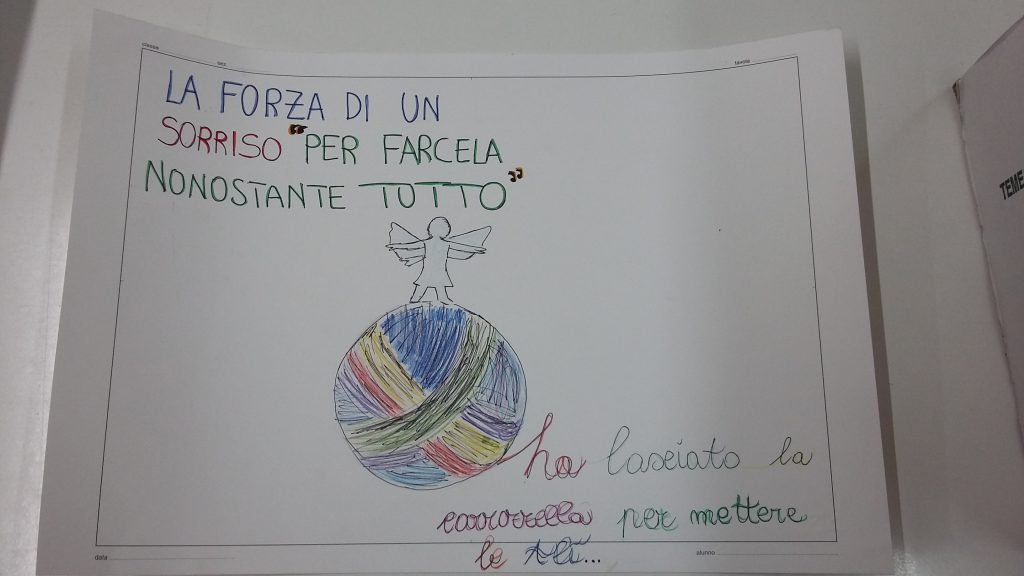 classe
sez.
tavola
LA FORZA DI UN
SORRISO "PER FARCELA
NONOSTANTE TUTTO"
ha lasciato la
carrozzella per mettere
le ali...
data
alunno
TEME